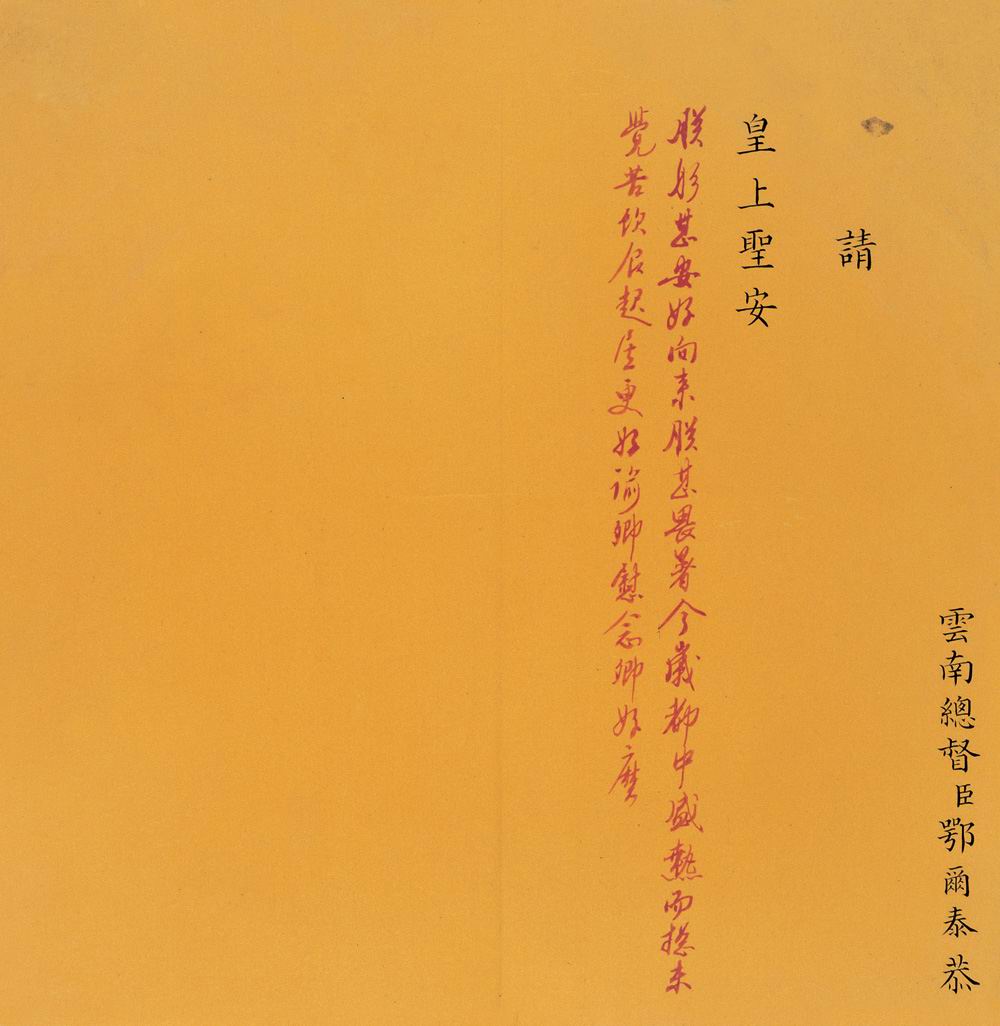 雲南總督臣鄂爾泰恭
請
皇上聖安
朕躬甚安好向來朕甚畏暑今歲都中盛熱而總未
覺苦飲食起居更好諭卿慰念卿好麽